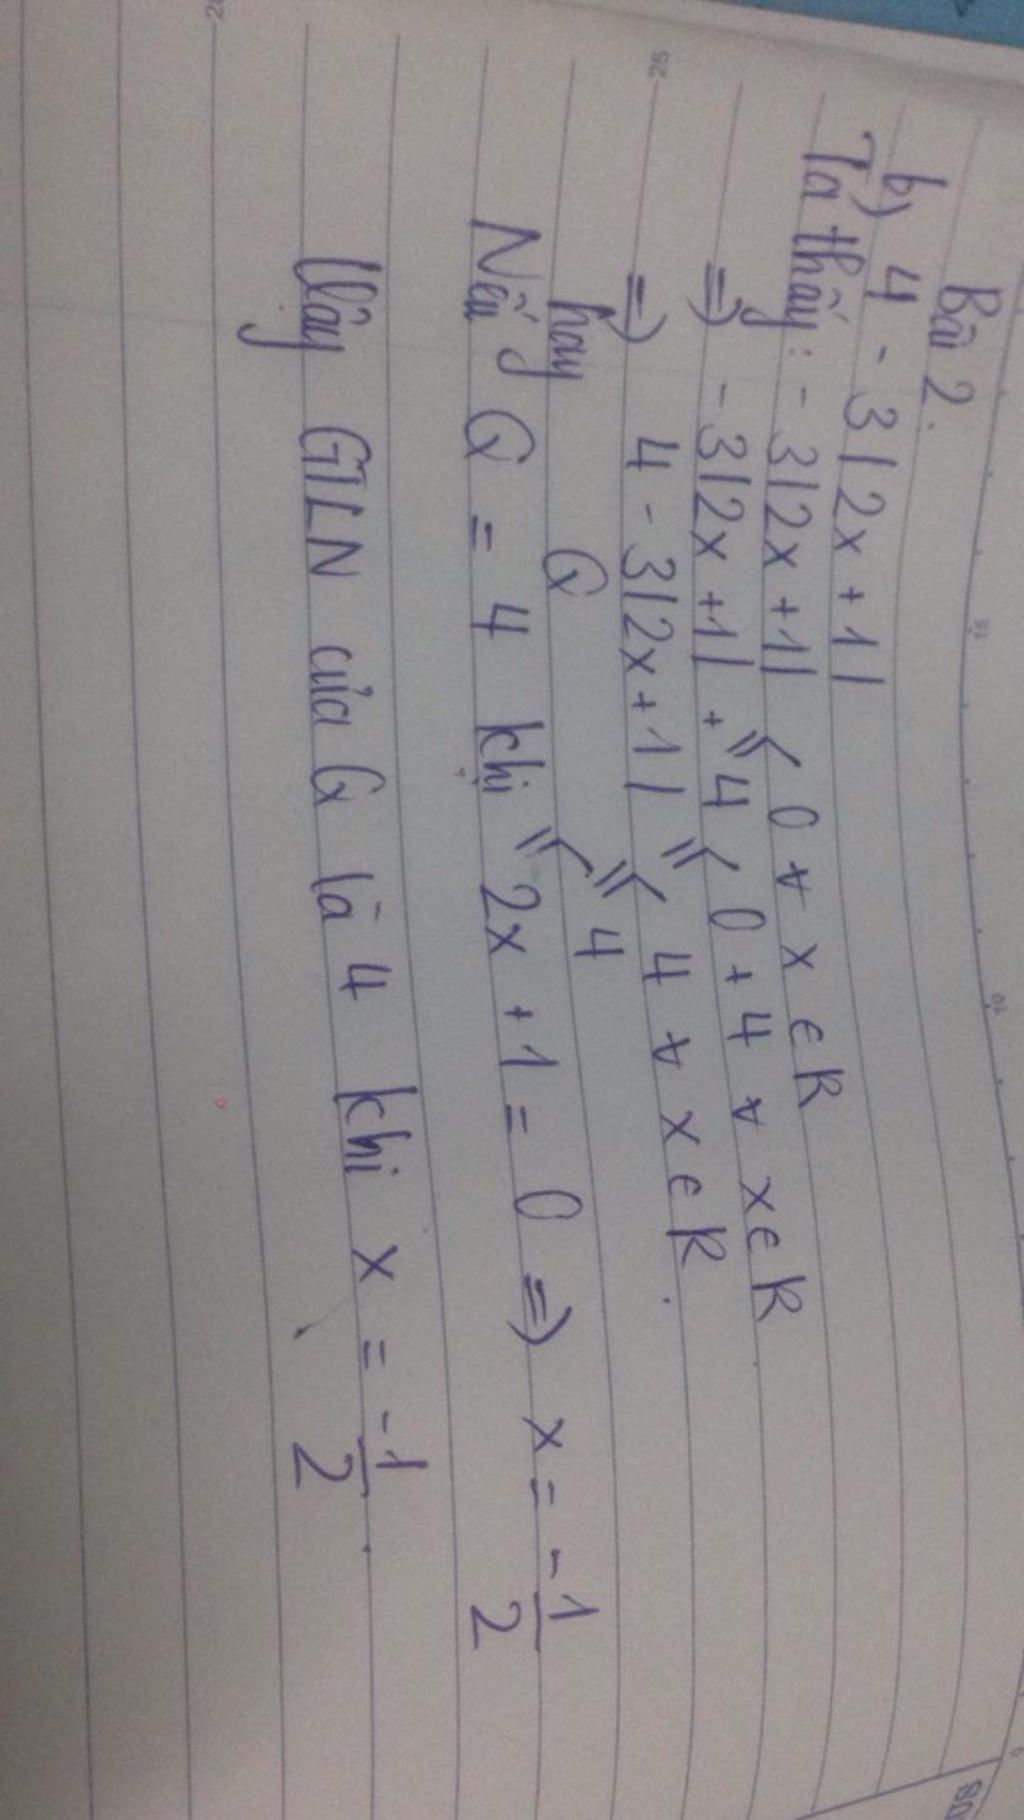 Bài 2.
b) 4 - 3|2x+1|
Ta thấy: -3|2x+1| ≤ 0 ∀ x ∈ R
=> -3|2x+1| + 4 ≤ 0+4 ∀ x∈R
=> 4 - 3|2x+1| ≤ 4 ∀ x∈R.
hay Q ≤ 4
Nếu Q = 4 khi 2x+1=0 => x = -1/2
Vậy GTLN của Q là 4 khi x = -1/2.